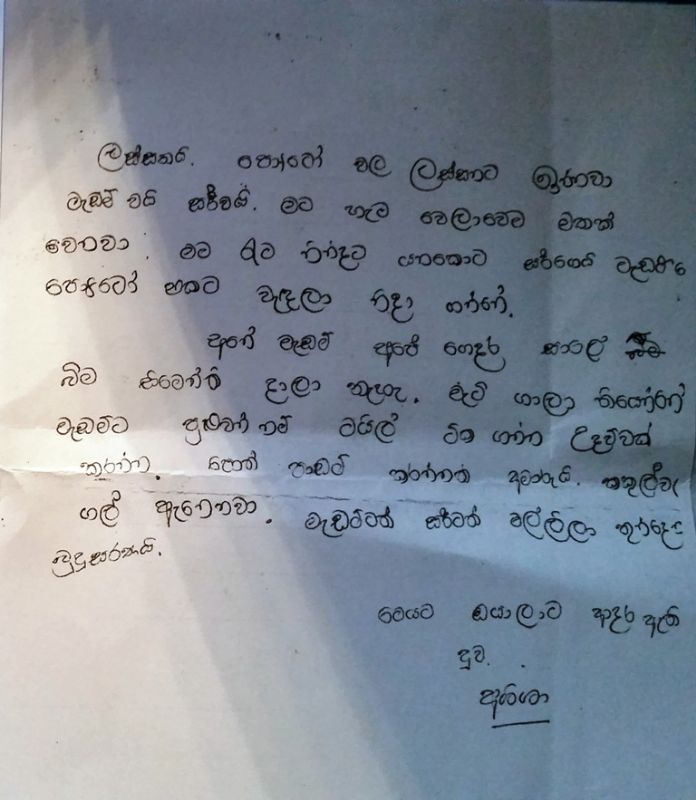 ලස්සනයි. පොටෝ වල ලස්සනට ඉන්නවා
මැඩම් වයි සර්වයි. මට හැම වෙලාවෙම මතක්
වෙනවා. මට රෑට නින්දට යනකොට සර්ගෙයි මැඩම්ගෙ
පොටෝ එකට වැඳලා නිදා ගන්නේ.
අනේ මැඩම් අපේ ගෙදර සාලේ
බිම සිමෙන්ති දාලා නැහැ. මැටි ගාලා තියෙන්නේ
මැඩම්ට පුළුවන් නම් ටයිල් ටික ගන්න උදව්වක්
කරන්න. පොත් පාඩම් කරන්නත් අමාරුයි. කකුල්වල
ගල් ඇනෙනවා. මැඩම්ටත් සර්ටත් මල්ලිලා තුන්දෙ
බුදුසරණයි.
මෙයට ඔයාලට ආදර ඇති
දුව.